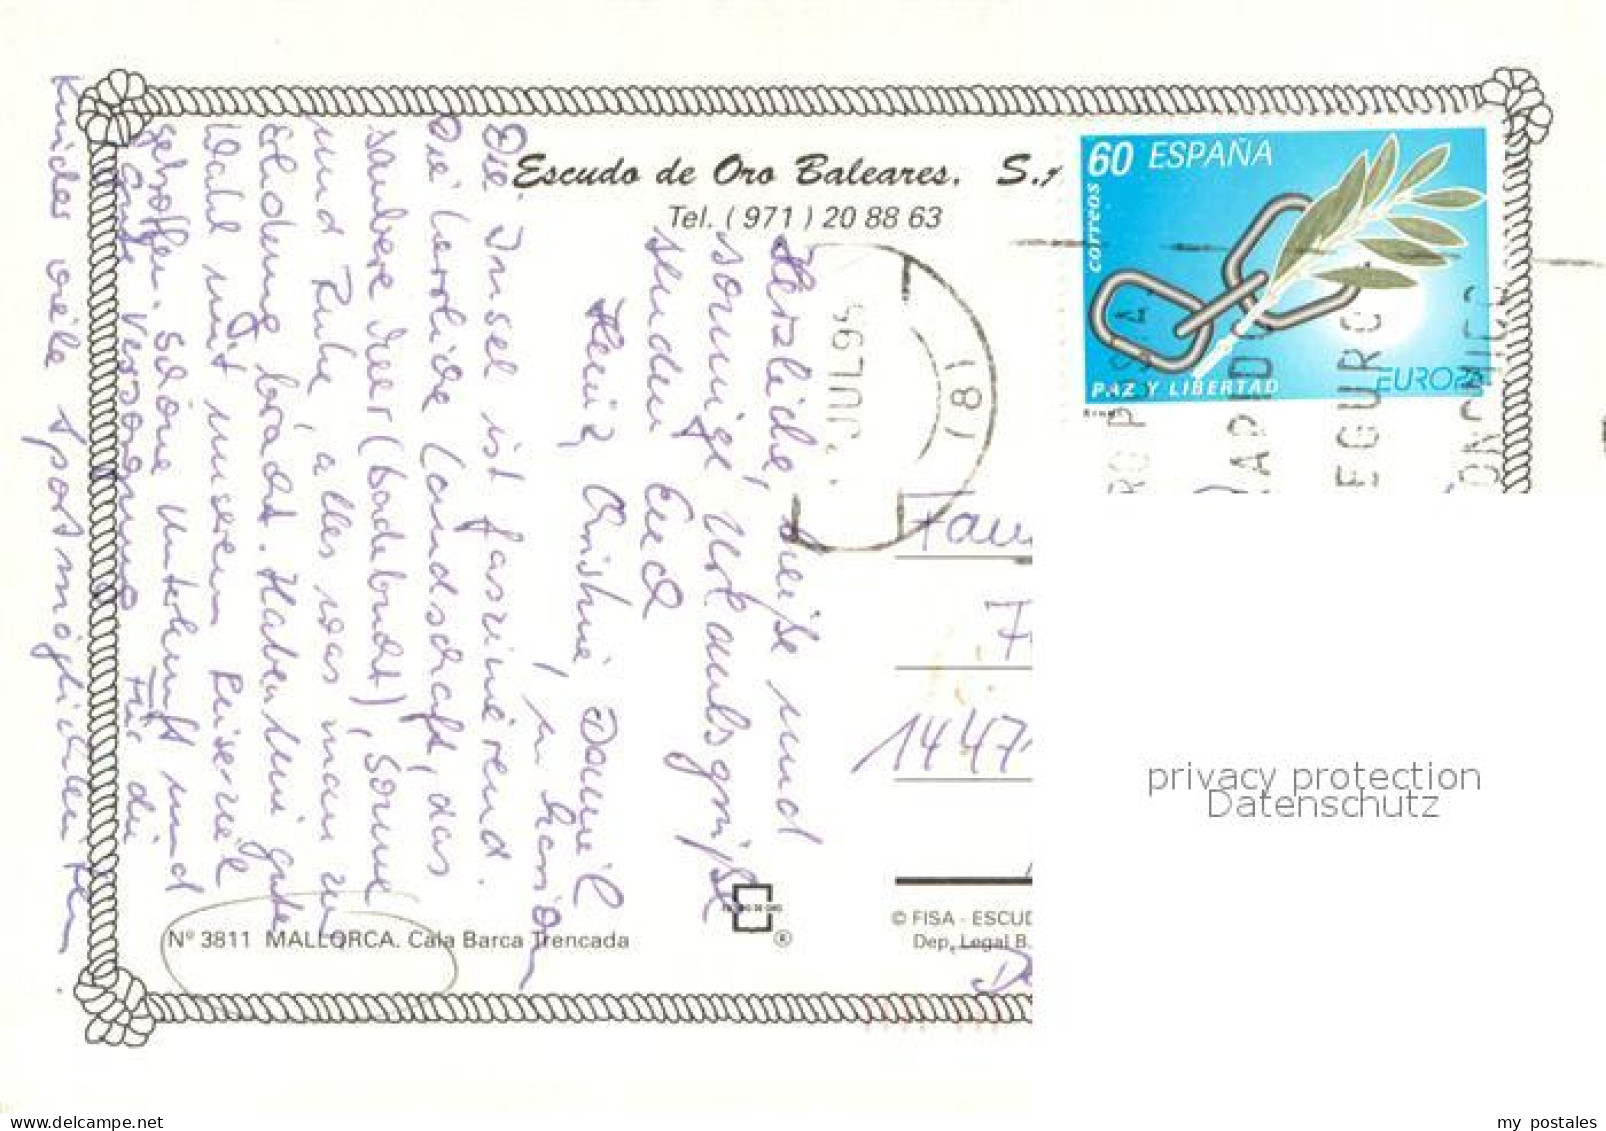 Escudo de Oro Baleares. S.
Tel. (971) 20 88 63
60 ESPAÑA
correos
PAZ Y LIBERTAD
EUROPA
JUL 95
(81)
Herzliche, heiße und
sonnige Urlaubsgrüße
senden Euch
Heinz, Christine, Daniel
Die Insel ist faszinierend.
Die herrliche Landschaft, das
saubere Meer (badebucht), Sonne
und Ruhe, alles was man zur
Erholung braucht. Haben eine gute
Wahl mit unserem Reiseziel
getroffen. Schöne Unterkunft und
gute Versorgung. Für die
Kinder viele Sportmöglichkeiten.
Fam
1447
Nº 3811 MALLORCA. Cala Barca Trencada
© FISA - ESCUD
Dep. Legal B.
privacy protection
Datenschutz
my postales